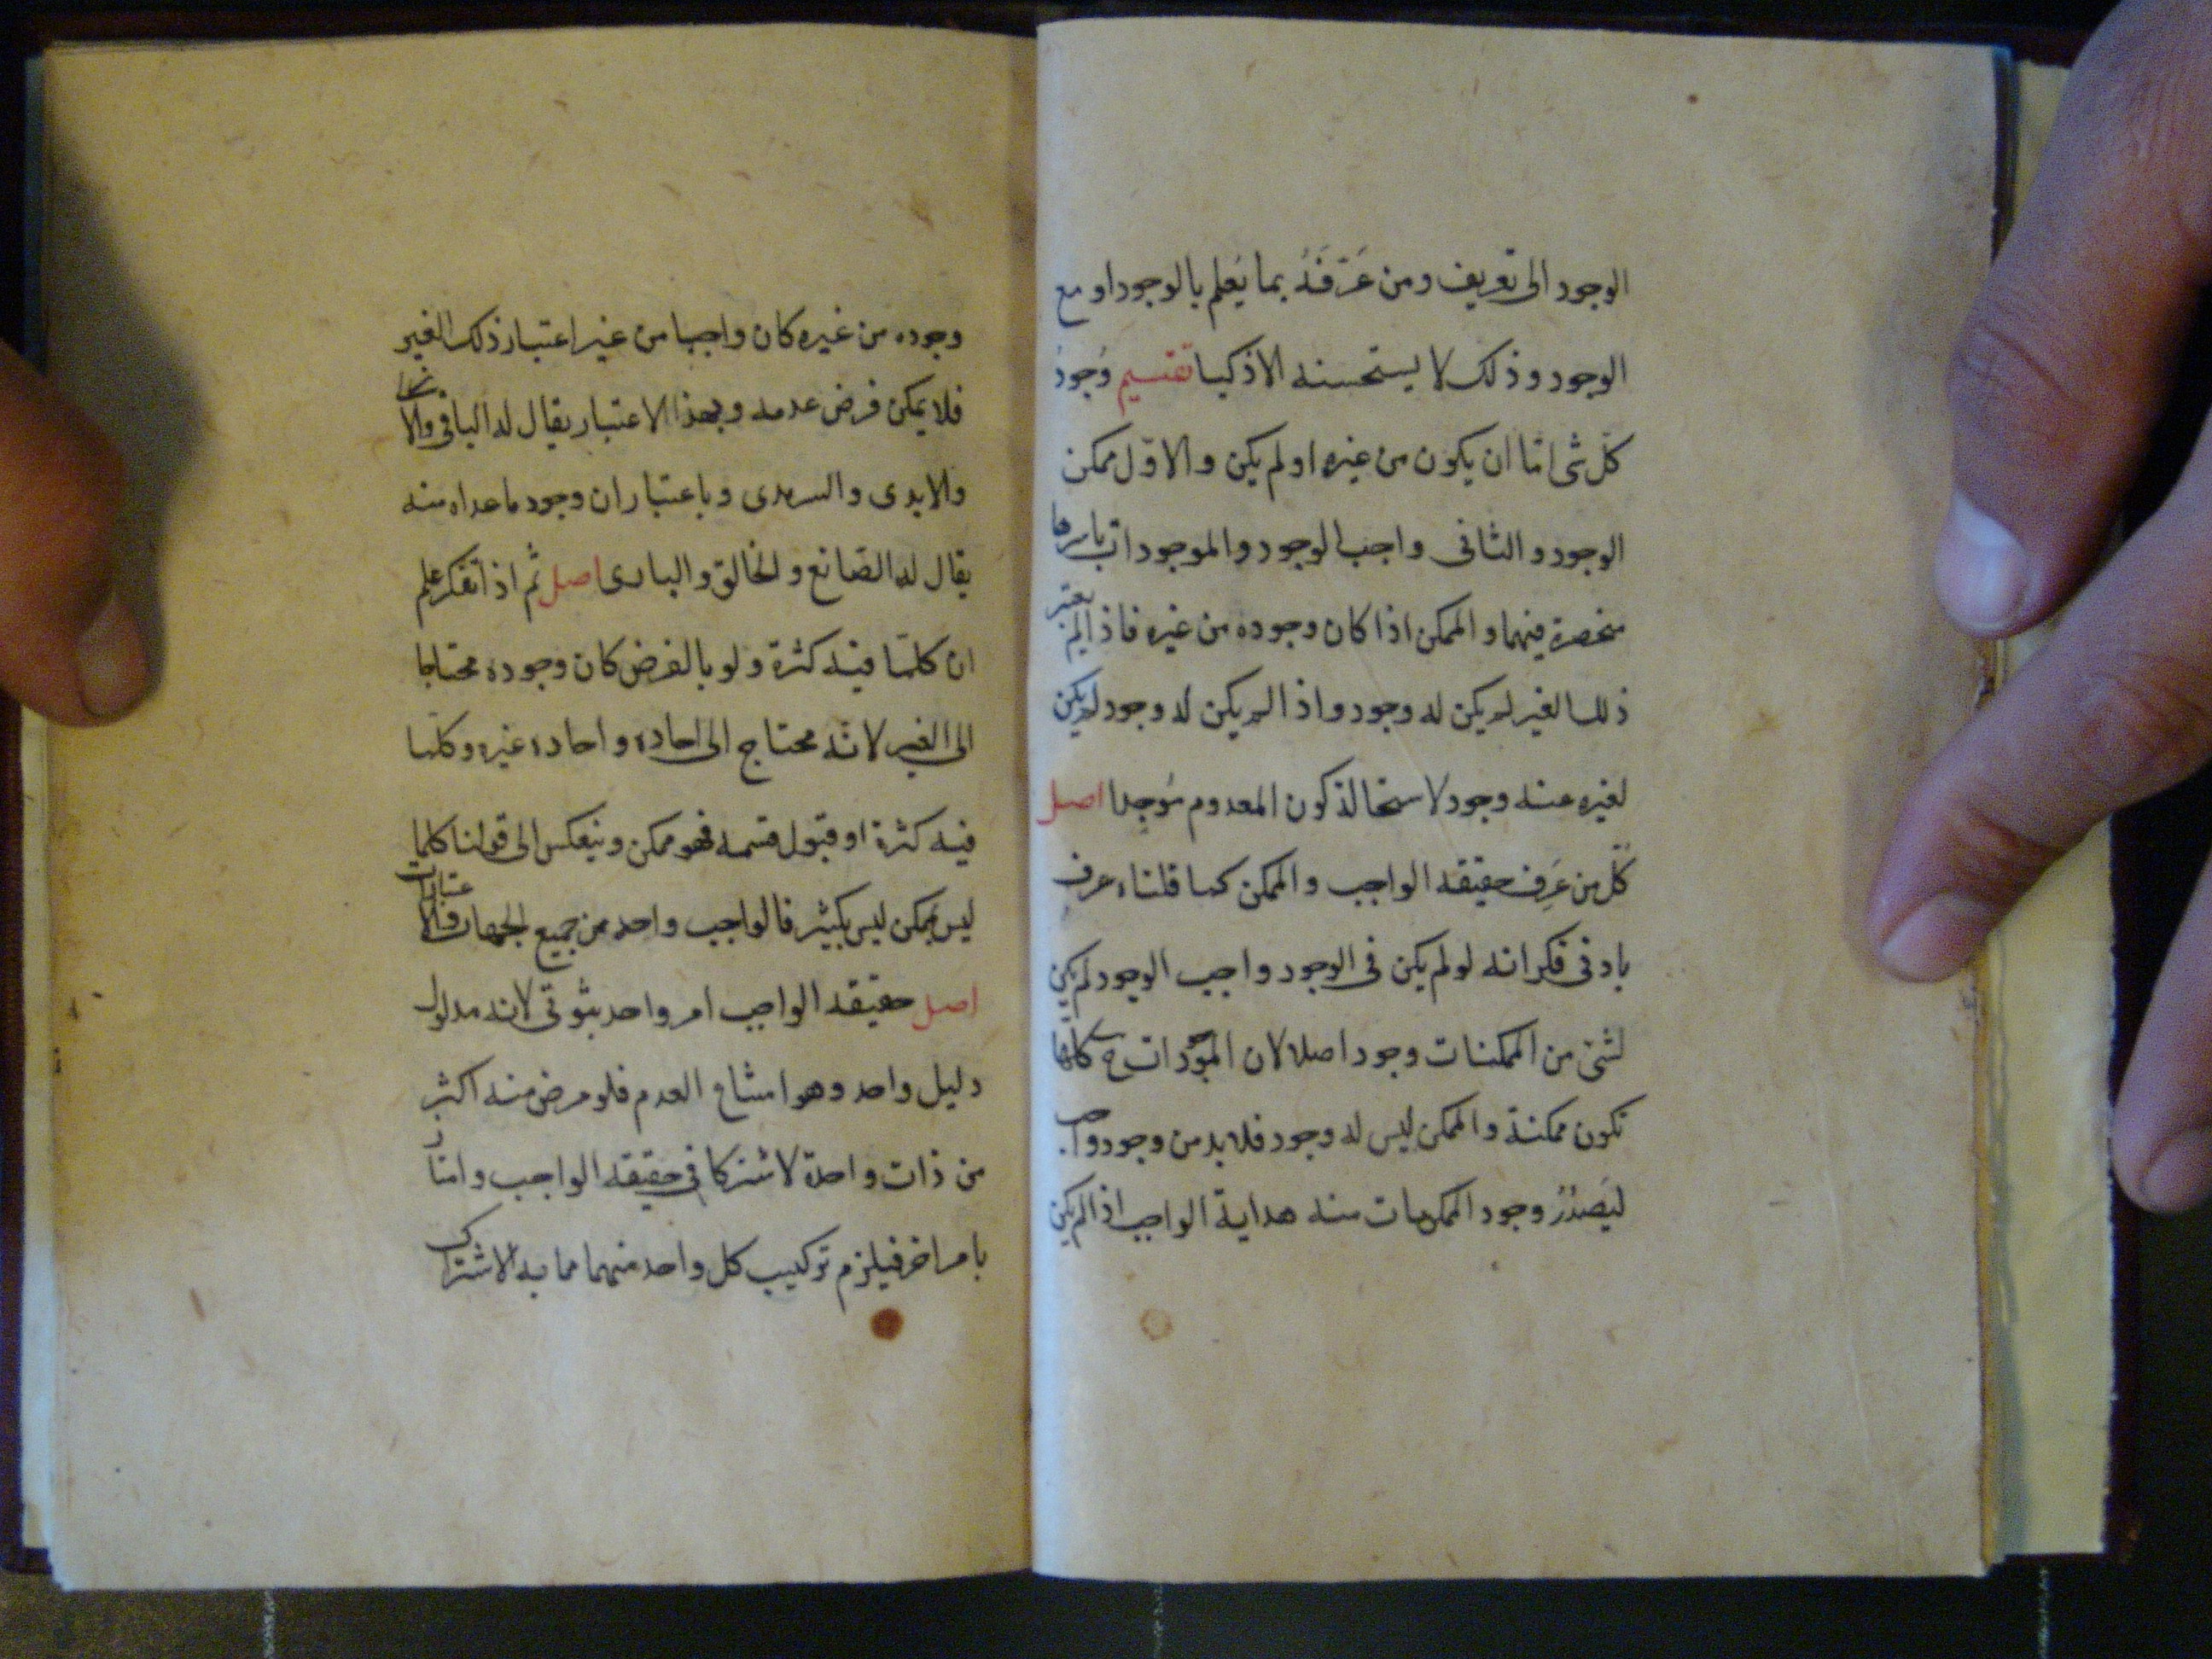 الوجود الى تعريف ومن عَرّفَهُ بما يُعلم بالوجود او مع
الوجود وذلك لا يستحسنه الاذكيا تقسيم وُجودُ
كلّ شى امّا ان يكون من غيره او لم يكن والاوّل ممكن
الوجود والثانى واجب الوجود والموجودات باسرها
منحصرة فيهما والممكن اذا كان وجوده من غيره فاذا لم يعتبر
ذلك الغير لم يكن له وجود واذا لم يكن له وجود لم يكن
لغيره عنه وجود لاستحالة كون المعدوم مُوجِدا اصل
كلّ من عَرف حقيقه الواجب والممكن كما قلناه عرف
بادنى فكر انه لو لم يكن فى الوجود واجب الوجود لم يكن
لشئ من الممكنات وجود اصلا لان الموجودات ح كلها
تكون ممكنة والممكن ليس له وجود فلابد من وجود واجب
ليَصْدُرَ وجود الممكنات منه هداية الواجب اذا لم يكن
وجوده من غيره كان واجبا من غير اعتبار ذلك الغير
فلا يمكن فرض عدمه وبهذا الاعتبار يقال له الباقى والازلى
والابدى والسرمدى وباعتبار ان وجود ما عداه منه
يقال له الصانع والخالق والبارى اصل ثم اذا تفكر علم
ان كلما فيه كثرة ولو بالفرض كان وجوده محتاجا
الى الغير لانّه محتاج الى احاده واحاده غيره وكلّما
فيه كثرة او قبول قسمه فهو ممكن وينعكس الى قولنا كلما
ليس بممكن ليس بكثير فالواجب واحد من جميع الجهات والاعتبارات
اصل حقيقه الواجب امر واحد ثبوتى لانه مدلول
دليل واحد وهو امتناع العدم فلو فرض منه اكثر
من ذات واحدة لاشتركا فى حقيقه الواجب وامتازا
بامر اخر فيلزم تركيب كل واحد منهما مما به الاشتراك